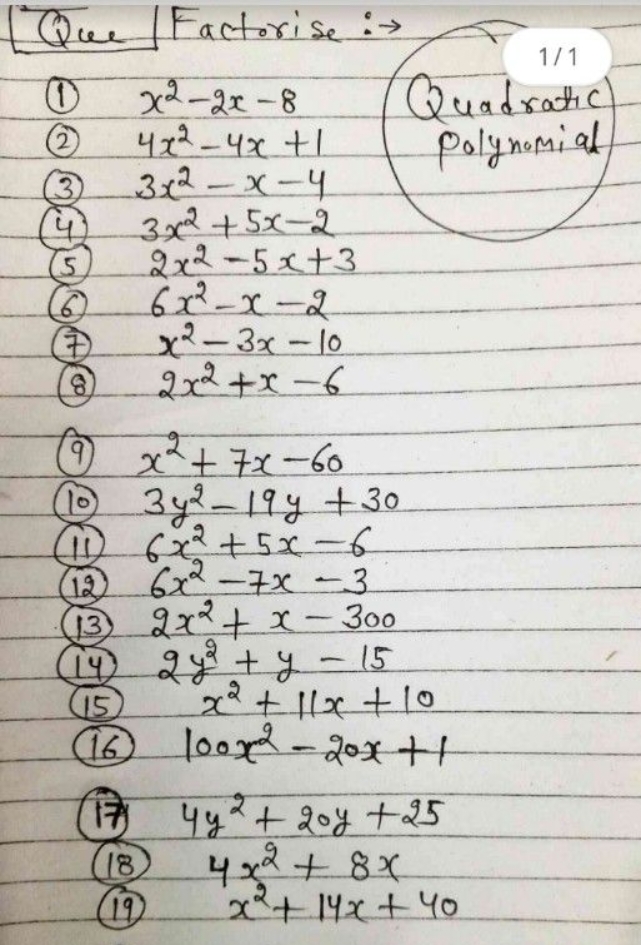 Que Factorise :→
1/1
Quadratic
Polynomial
① x² - 2x - 8
② 4x² - 4x + 1
③ 3x² - x - 4
④ 3x² + 5x - 2
⑤ 2x² - 5x + 3
⑥ 6x² - x - 2
⑦ x² - 3x - 10
⑧ 2x² + x - 6
⑨ x² + 7x - 60
⑩ 3y² - 19y + 30
⑪ 6x² + 5x - 6
⑫ 6x² - 7x - 3
⑬ 2x² + x - 300
⑭ 2y² + y - 15
⑮ x² + 11x + 10
⑯ 100x² - 20x + 1
⑰ 4y² + 20y + 25
⑱ 4x² + 8x
⑲ x² + 14x + 40